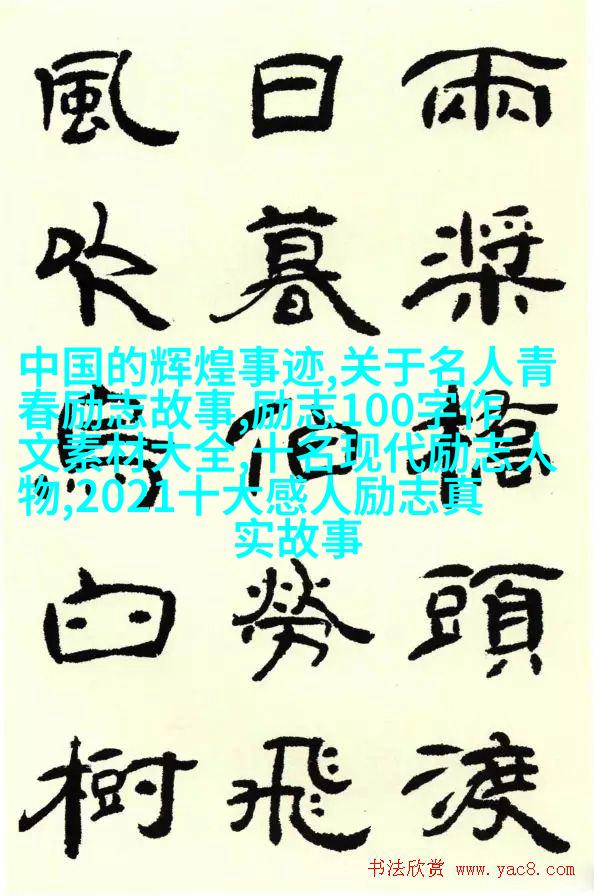 兩槳橋頭渡
日暮伯勞飛
風吹烏臼樹
中国的辉煌事迹,关于名人青
春励志故事,励志100字作
文素材大全,十名现代励志人
物,2021十大感人励志真
实故事
书法欣赏 www.yac8.com